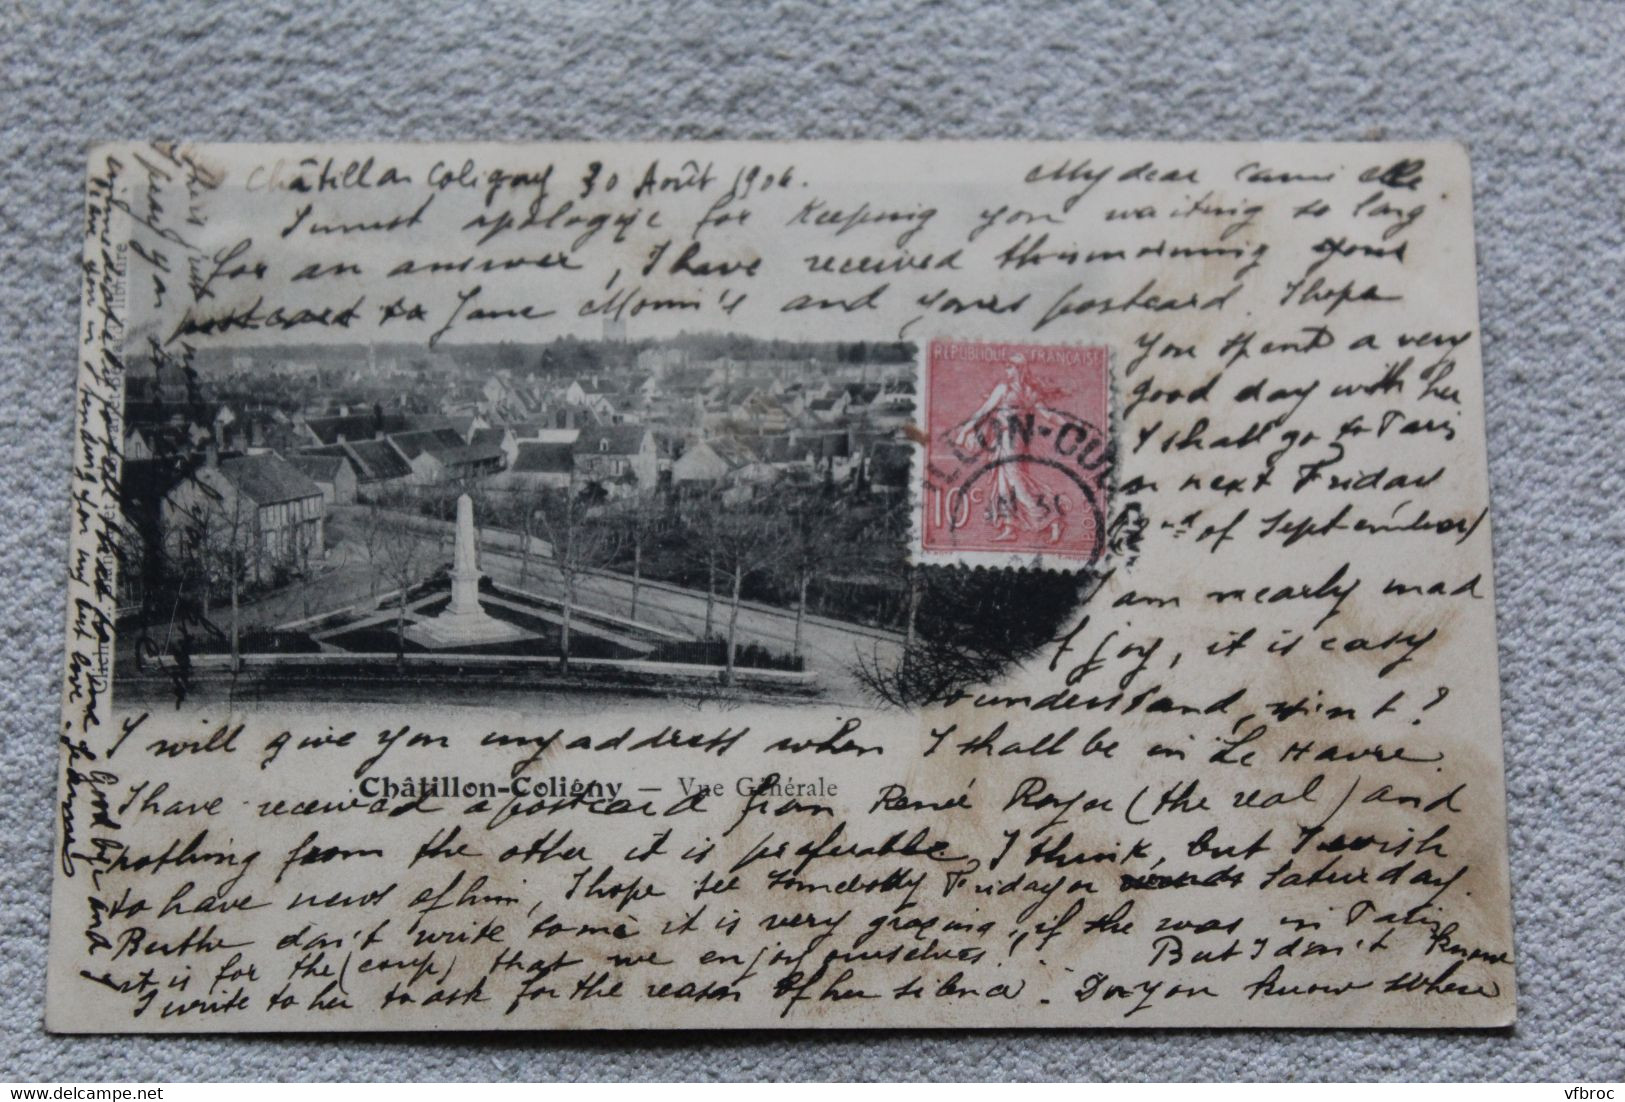 Châtillon Coligny 30 Août 1906.
My dear Camille.
I must apologize for keeping you waiting so long
for an answer, I have received this morning your
postcard to Jane Morin's and yours postcard. I hope
you spent a very
good day with her
I shall go to Paris
on next Friday
of September
I am nearly mad
of joy, it is easy
to understand, isin't?
I will give you my address when I shall be in Le Havre.
I have received a postcard from René Royer (the real) and
nothing from the other it is preferable, I think, but I wish
to have news of him, I hope see somebody Friday or Saturday.
Berthe don't write to me it is very if she was in Paris
it is for the (coup) that we enjoy ourselves! But I don't know
I write to her to ask for the reason of her silence. Do you know where
RÉPUBLIQUE FRANÇAISE
10c
POSTES
Châtillon-Coligny — Vue Générale
pray you to
immediately to tell that to me Good bye and
I leave you in sending you my best love. Jeanne
vfbroc